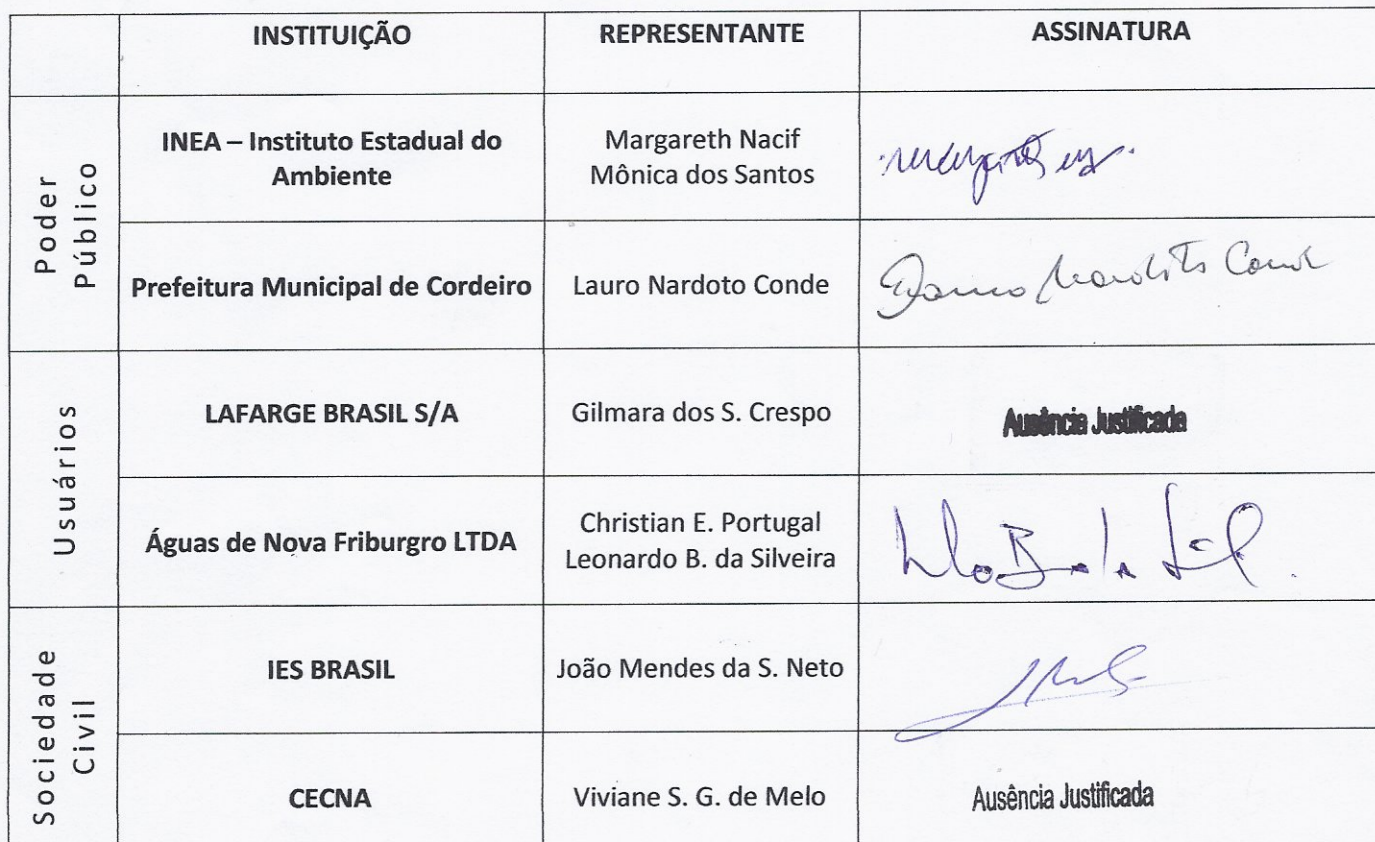 INSTITUIÇÃO REPRESENTANTE ASSINATURA
Poder
Público
INEA – Instituto Estadual do
Ambiente
Margareth Nacif
Mônica dos Santos
Prefeitura Municipal de Cordeiro
Lauro Nardoto Conde
Lauro Nardoto Conde
Usuários
LAFARGE BRASIL S/A
Gilmara dos S. Crespo
Ausência Justificada
Águas de Nova Friburgro LTDA
Christian E. Portugal
Leonardo B. da Silveira
Sociedade
Civil
IES BRASIL
João Mendes da S. Neto
CECNA
Viviane S. G. de Melo
Ausência Justificada